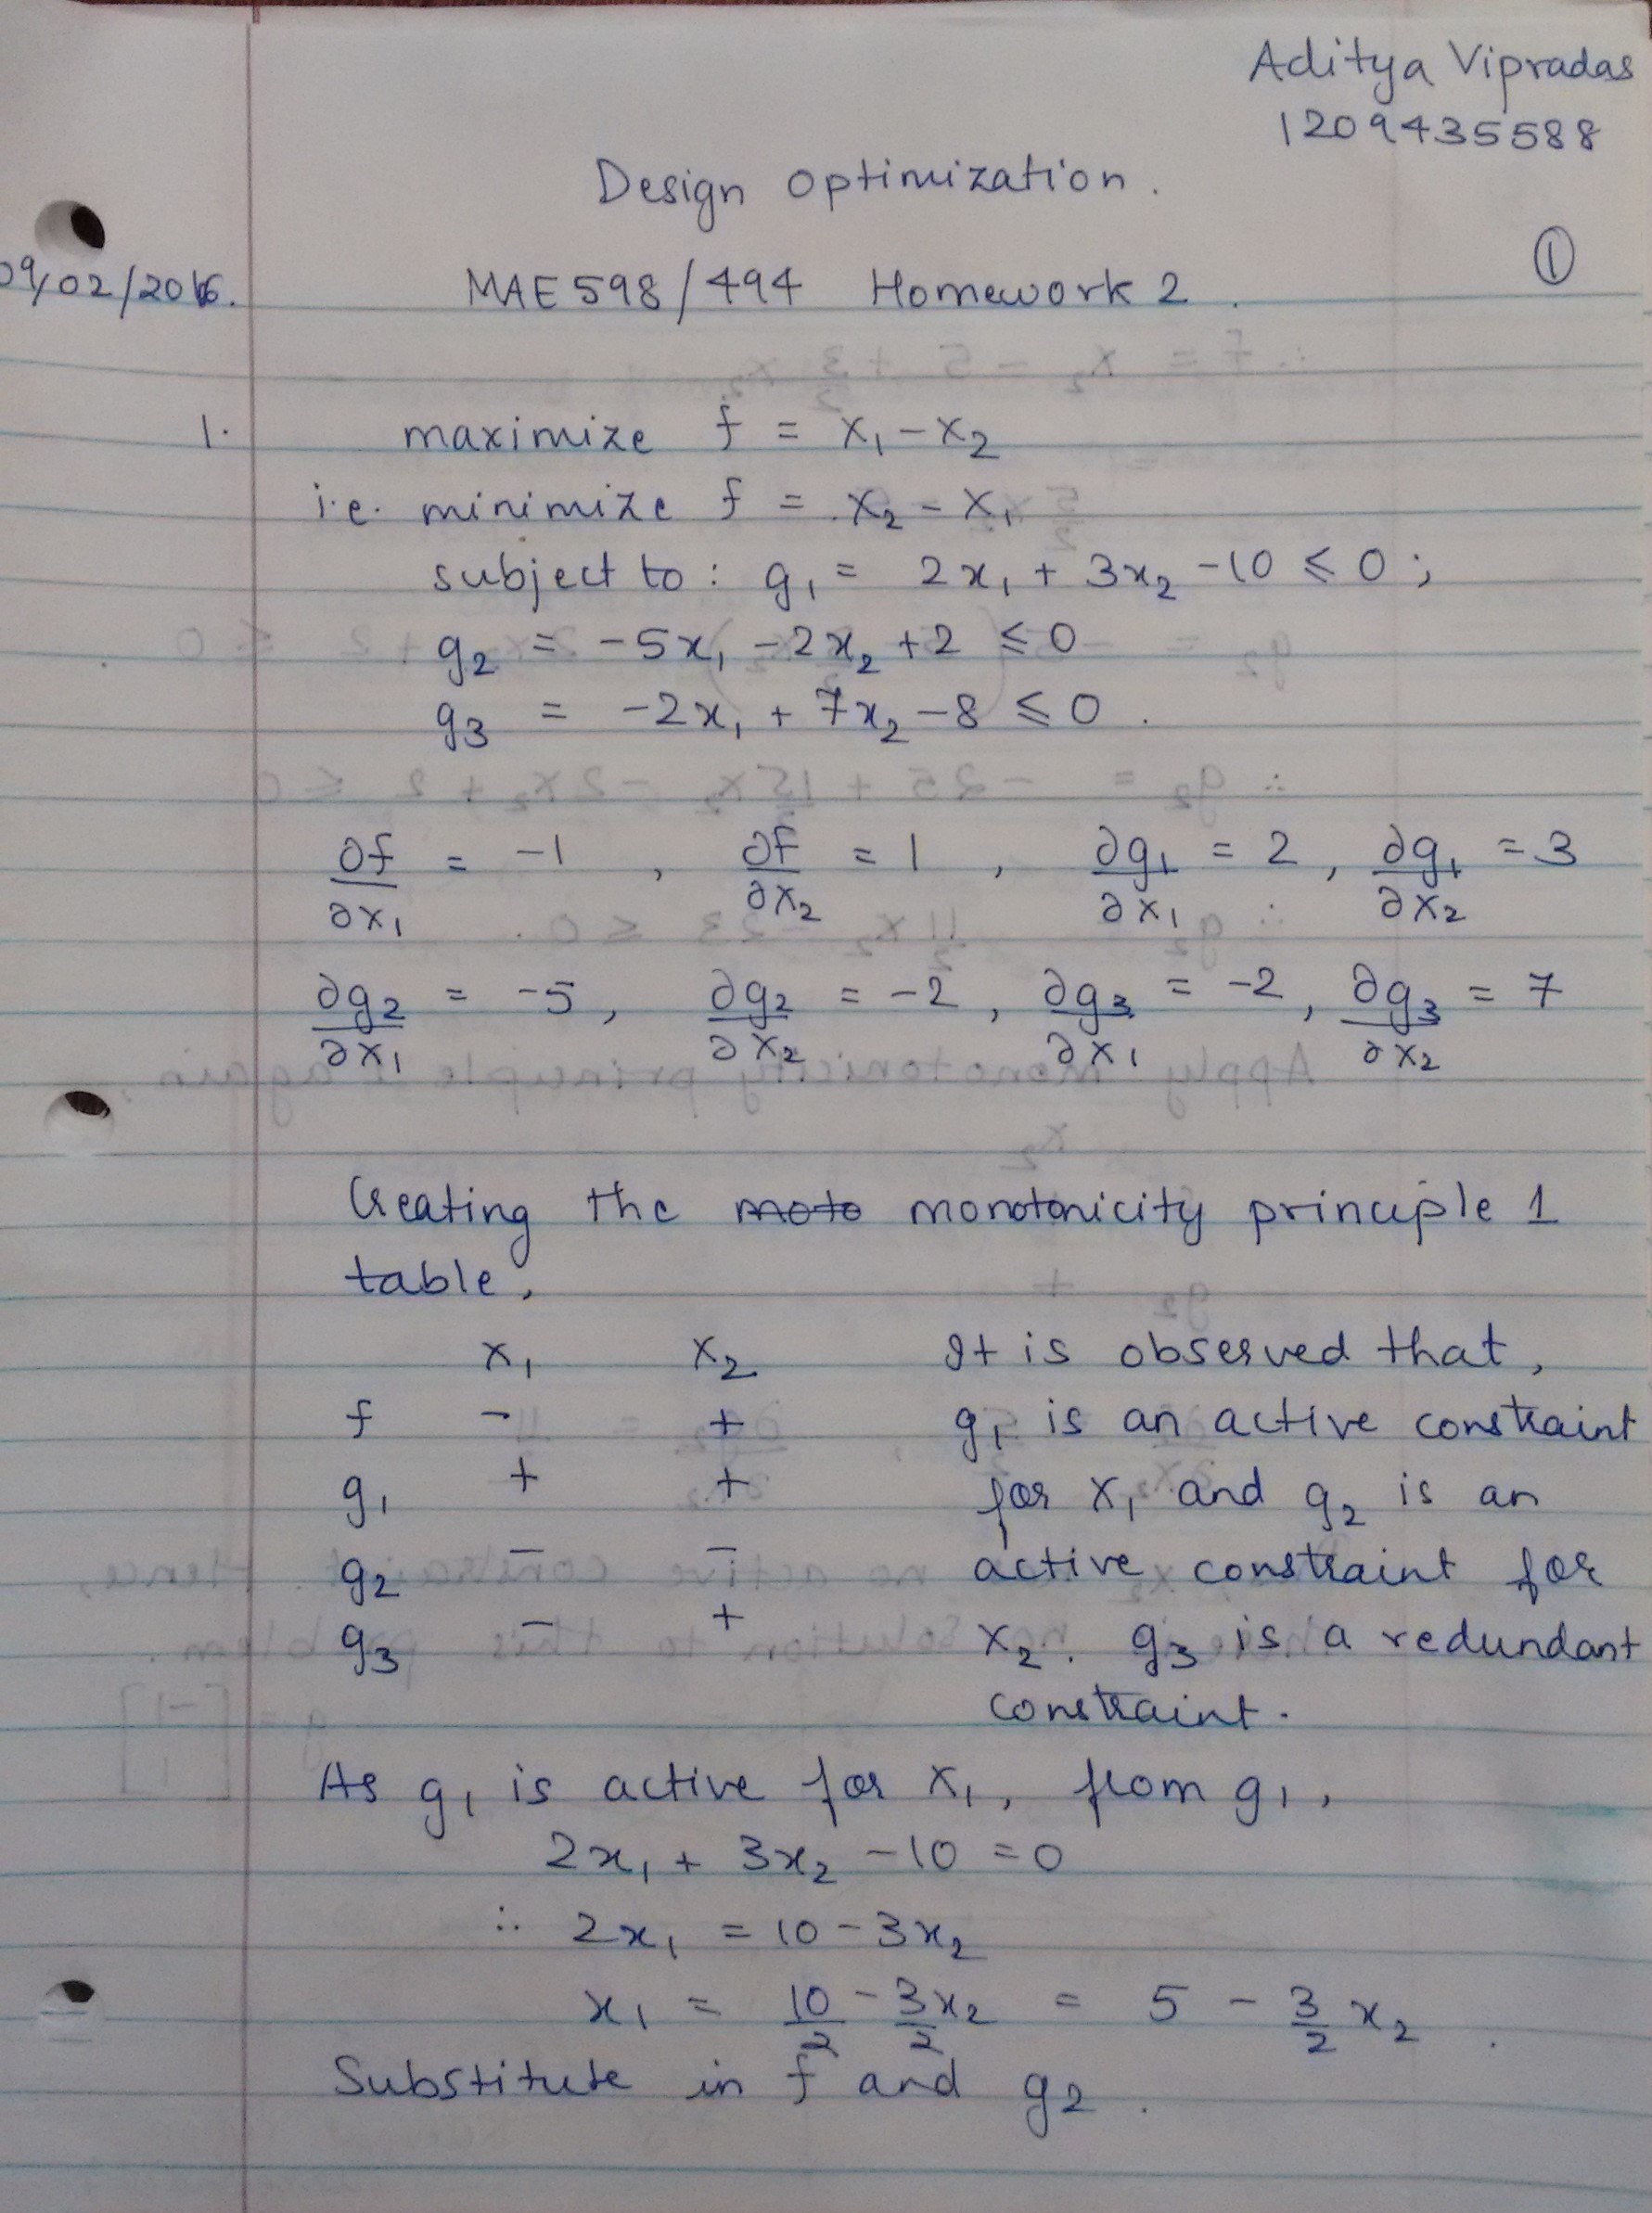 Aditya Vipradas
1209435588
Design optimization.
①
09/02/2016.
MAE598/494 Homework 2.
1. maximize f = x₁ - x₂
i.e. minimize f = x₂ - x₁
subject to: g₁ = 2x₁ + 3x₂ - 10 ≤ 0;
g₂ = -5x₁ - 2x₂ + 2 ≤ 0
g₃ = -2x₁ + 7x₂ - 8 ≤ 0.
∂f/∂x₁ = -1, ∂f/∂x₂ = 1, ∂g₁/∂x₁ = 2, ∂g₁/∂x₂ = 3
∂g₂/∂x₁ = -5, ∂g₂/∂x₂ = -2, ∂g₃/∂x₁ = -2, ∂g₃/∂x₂ = 7
Creating the moto monotonicity principle 1
table,
x₁ x₂ It is observed that,
f - + g₁ is an active constraint
g₁ + + for x₁ and g₂ is an
g₂ - - active constraint for
g₃ - + x₂. g₃ is a redundant
constraint.
As g₁ is active for x₁, from g₁,
2x₁ + 3x₂ - 10 = 0
∴ 2x₁ = 10 - 3x₂
x₁ = 10/2 - 3/2 x₂ = 5 - 3/2 x₂.
Substitute in f and g₂.